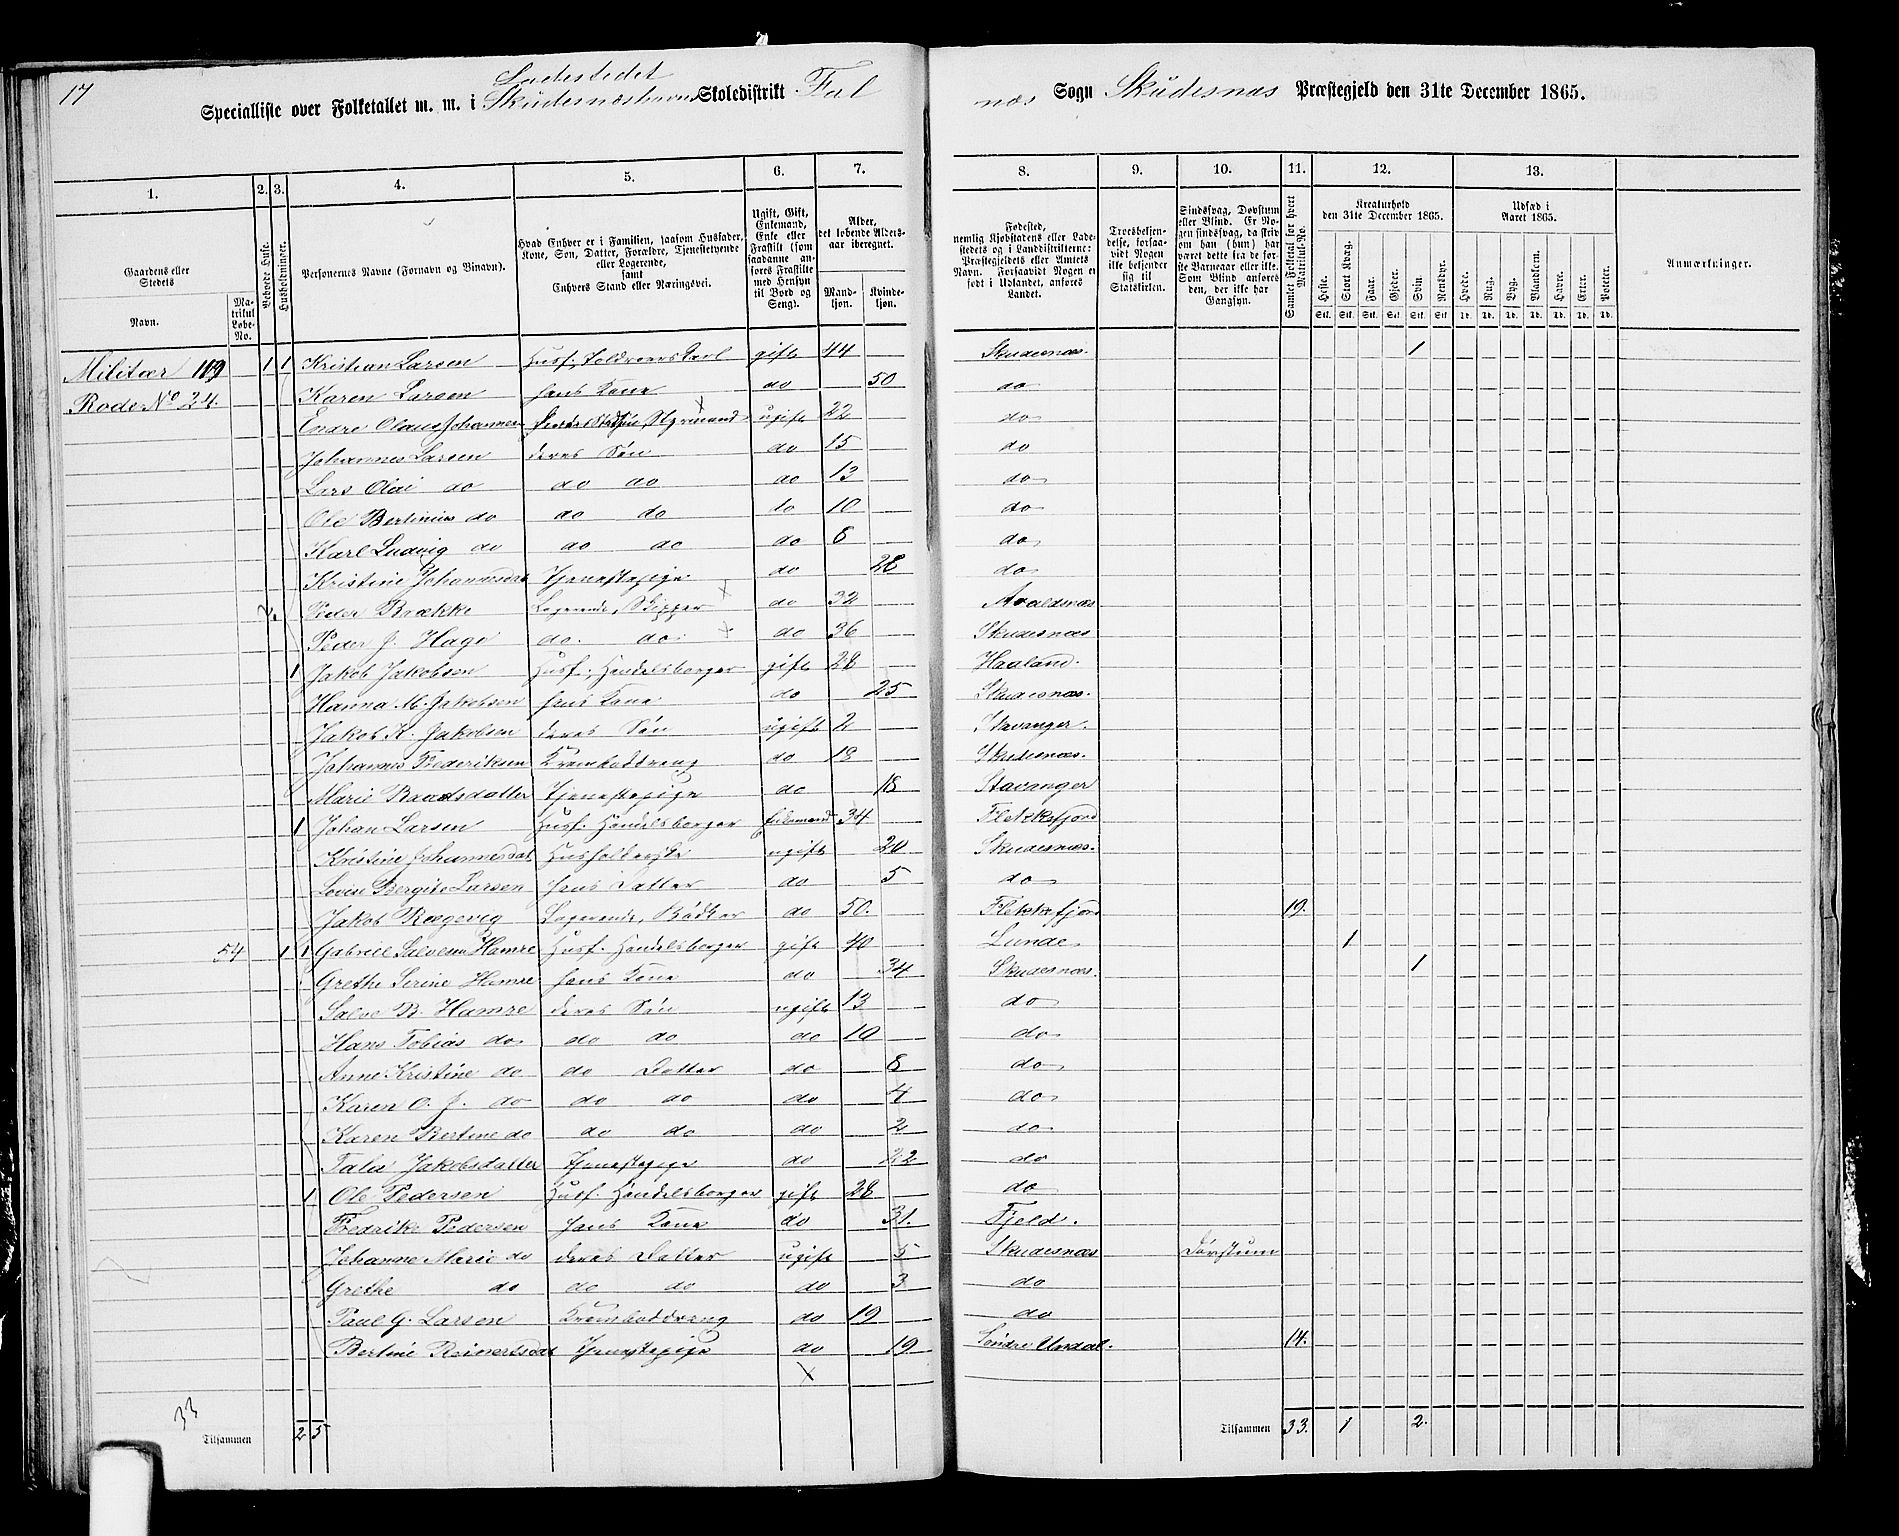 17
Ladestedet
Specialliste over Folketallet m. m. i Skudesnæshavn Skoledistrikt Fal
næs Sogn Skudesnæs Præstegjeld den 31te December 1865.
1. 2. 3. 4. 5. 6. 7. 8. 9. 10. 11. 12. 13.
Gaardens eller Stedets Navn. Matrikul Løbe-No.
Beboede Huse.
Husholdninger.
Personernes Navne (Fornavn og Binavn).
Hvad Enhver er i Familien, saasom Husfader, Kone, Søn, Datter, Forældre, Tjenestetyende eller Logerende, samt Enhvers Stand eller Næringsvei.
Ugift, Gift, Enkemand, Enke eller Fraskilt (som saadanne anføres Fraskilte med Hensyn til Bord og Seng).
Alder, det løbende Alders-aar iberegnet.
Mandkjøn. Kvindekjøn.
Fødested, nemlig Kjøbstadens eller Ladestedets og i Landdistrikterne: Præstegjeldets eller Amtets Navn. Forsaavidt Nogen er født i Udlandet, anføres Landet.
Troesbekjendelse, forsaavidt Nogen ikke bekjender sig til Statskirken.
Sindssvag, Døvstum eller Blind. Er Nogen sindssvag, da skriv om han (hun) har været dette fra de første Barneaar eller ikke. Som Blind anføres den, der ikke har Gangsyn.
Samlet Folketal for hvert Matrikul-No.
Kreaturhold den 31te December 1865.
Heste. Stort Kvæg. Faar. Gjeder. Svin. Rensdyr.
Stk. Stk. Stk. Stk. Stk. Stk.
Udsæd i Aaret 1865.
Hvede. Rug. Byg. Blandkorn. Havre. Erter. Poteter.
Td. Td. Td. Td. Td. Td. Td.
Anmærkninger.
Militær 119 1 1 Kristian Larsen Husf. Toldroerskarl gift 44 Skudesnæs. 1
Rode No 24. Karen Larsen hans Kone do 50 do
Endre Olaus Johannesen Styrmand ugift 22 do
Johannes Larsen deres Søn do 15 do
Lars Olai do do do do 13 do
Ole Bertinius do do do do 10 do
Karl Ludvig do do do do 8 do
Kristine Johannesdat Tjenestepige do 28 do
2 Peder Brække Logerende, Skipper do 32 Avaldsnæs
Peder J. Hage do. do do 36 Skudesnæs
1 Jakob Jakobsen Husf. Handelsborger gift 28 Haaland.
Hanna M. Jakobsen hans Kone do 25 Skudesnæs.
Jakob K. Jakobsen deres Søn ugift 2 Stavanger.
Johannes Frederiksen Kramboddreng do 18 Skudesnæs.
Marie Baardsdatter Tjenestepige do 18 Stavanger
1 Johan Larsen Husf. Handelsborger Enkemand 34 Flekkefjord
Kristine Johannesdat Husholderske ugift 20 Skudesnæs.
Lovise Bergite Larsen hans Datter do 5 do
Jakob Rægevig Logerende, Bødker do 50. Flekkefjord 19.
54 1 1 Gabriel Salvesen Hamre Husf. Handelsborger gift 40 Lunde 1
Grethe Serine Hamre hans Kone do 34 Skudesnæs. 1
Salve B. Hamre deres Søn ugift 13 do
Hans Tobias do do do do 10 do
Anne Kristine do do Datter do 8 do
Karen O. J. do do do do 4 do
Karen Bertine do do do do 2 do
Tala Jakobsdatter Tjenestepige do 22 do
1 Ole Pedersen Husf. Handelsborger gift 28 do
Fredrike Pedersen hans Kone do 31. Fjeld.
Johanne Marie do deres Datter ugift 5 Skudesnæs Døvstum
Grethe do do do do 3 do
Paul G. Larsen Kramboddreng do 19 do
Bertine Reinertsdat Tjenestepige do 19 Søndre Undal. 14.
33
Tilsammen 2 5
Tilsammen 33. 1 2.